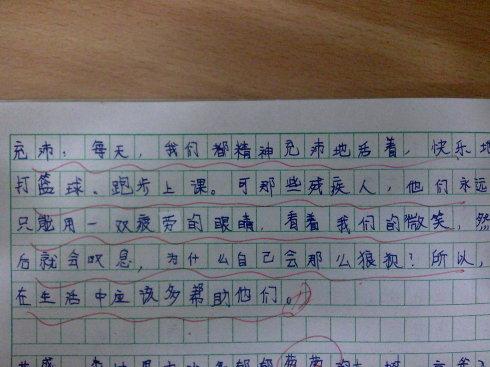 充沛，每天，我们都精神充沛地活着，快乐地
打篮球、跑步上课。可那些残疾人，他们永远
只能用一双疲劳的眼睛，看着我们的微笑，然
后就会叹息，为什么自己会那么狼狈？所以，
在生活中应该多帮助他们。